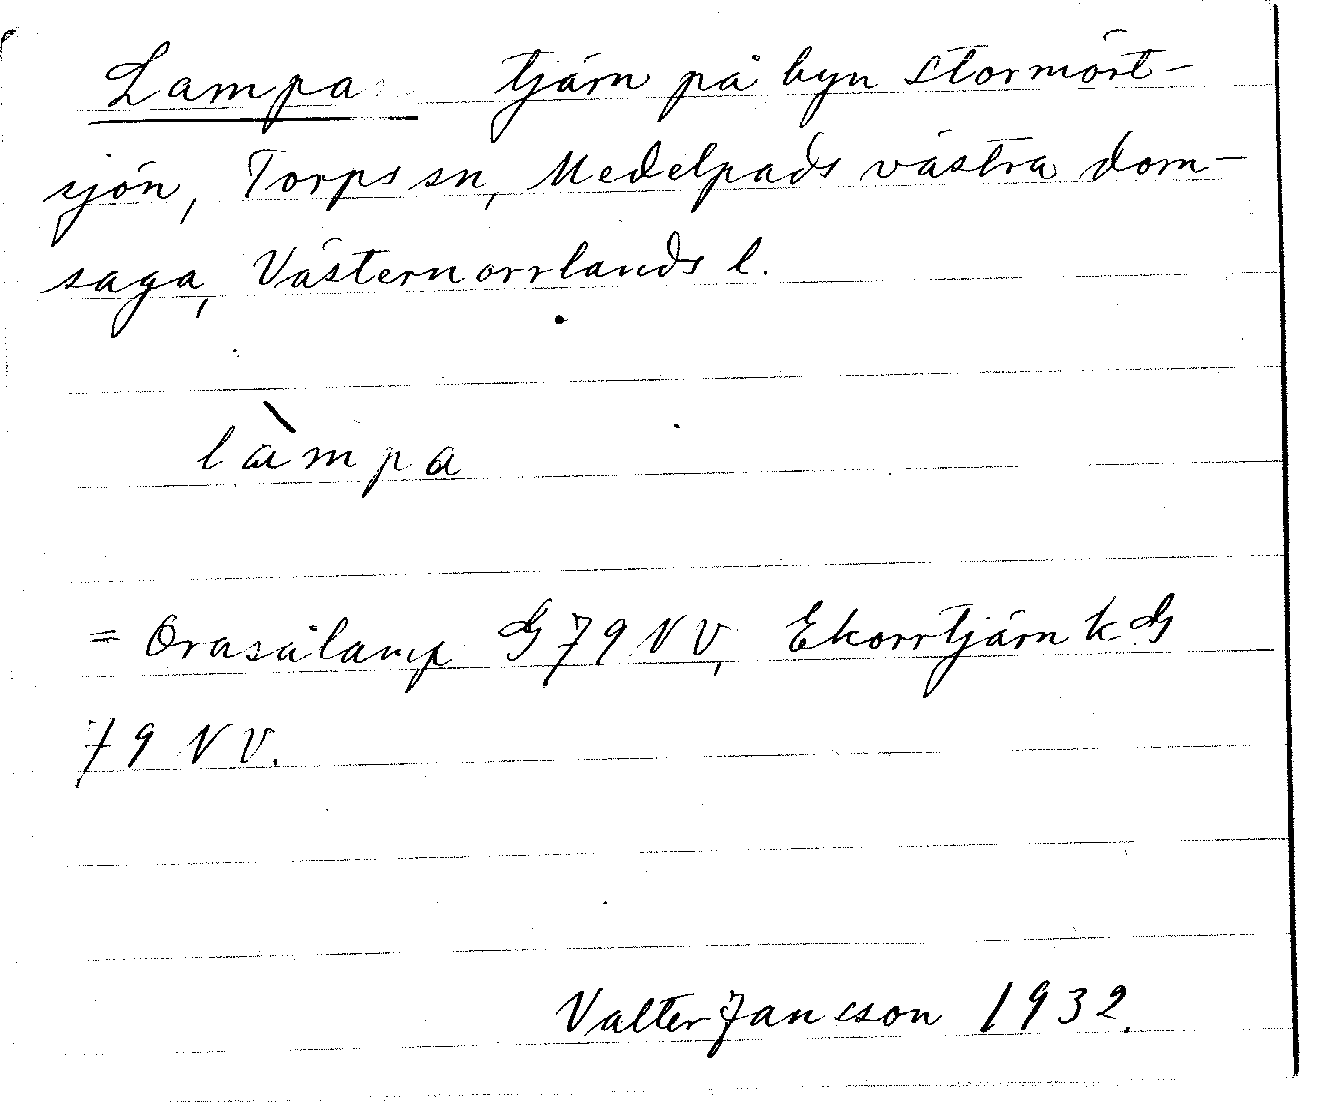 Lampa tjärn på byn Stormört-
sjön, Torps sn, Medelpads västra dom-
saga, Västernorrlands l.
làmpa
= Orasålamp G 79 NV, Ekorrtjärn k G
79 NV.
Valter Jansson 1932.